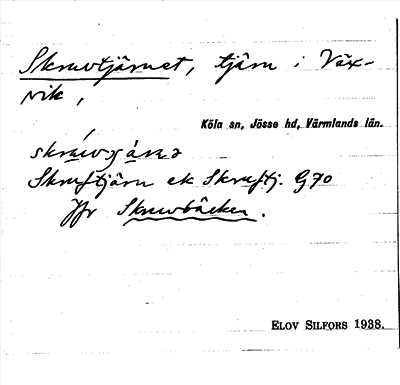 Skruvtjärnet, tjärn i Växvik,
Köla sn, Jösse hd, Värmlands län.
Skruftjärn ek Skruftj. G70
Jfr Skruvbäcken.
ELOV SILFORS 1938.